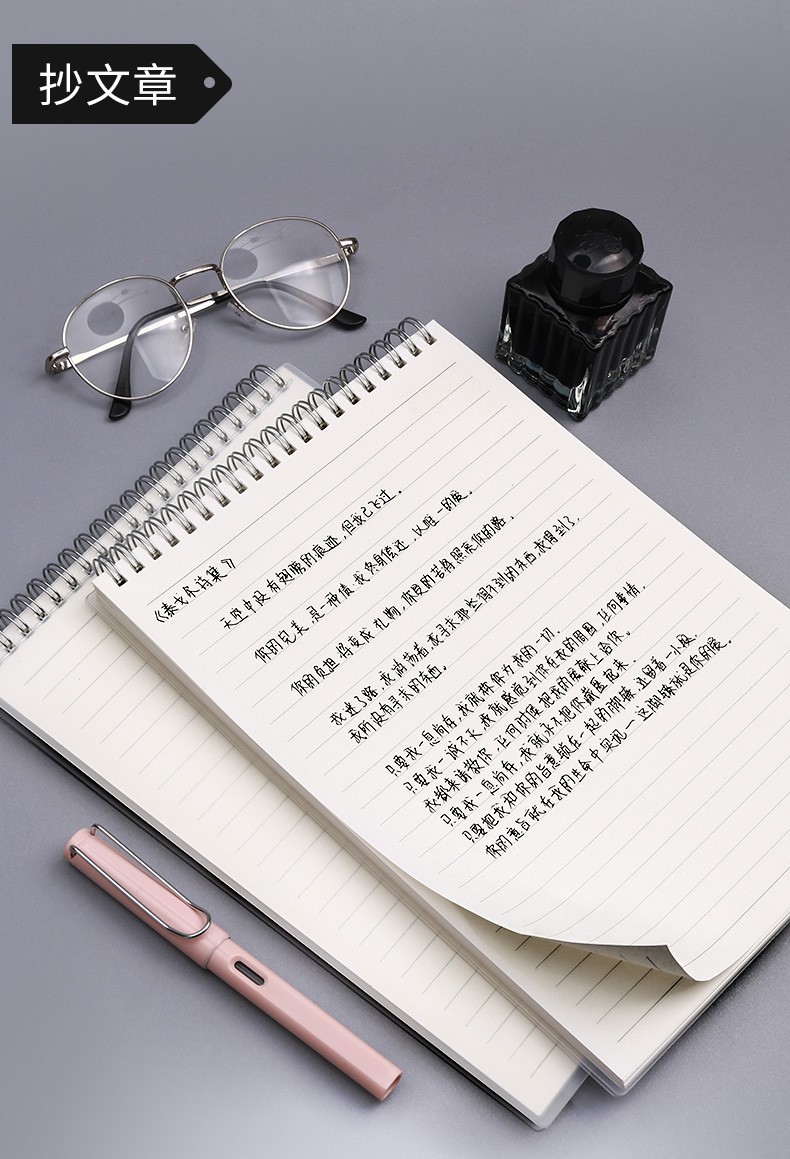 抄文章
《泰戈尔诗集》
天空中没有翅膀的痕迹,但我已飞过。
你的完美,是一种债,我终身偿还,以唯一的爱。
你的负担将变成礼物,你受的苦将照亮你的路。
我迷了路,我游荡着,我寻求那些得不到的东西,我得到了
我所没有寻求的东西。
只要我一息尚存,我就称你为我的一切。
只要我一诚不灭,我就感觉到你在我的周围,任何事情,
我都来请教你,任何时候把我的爱献上给你。
只要我一息尚存,我就永不把你藏匿起来。
只要把我和你的旨意锁在一起的脚镣,还留着一小段,
你的意旨就在我的生命中实现—这脚镣就是你的爱。